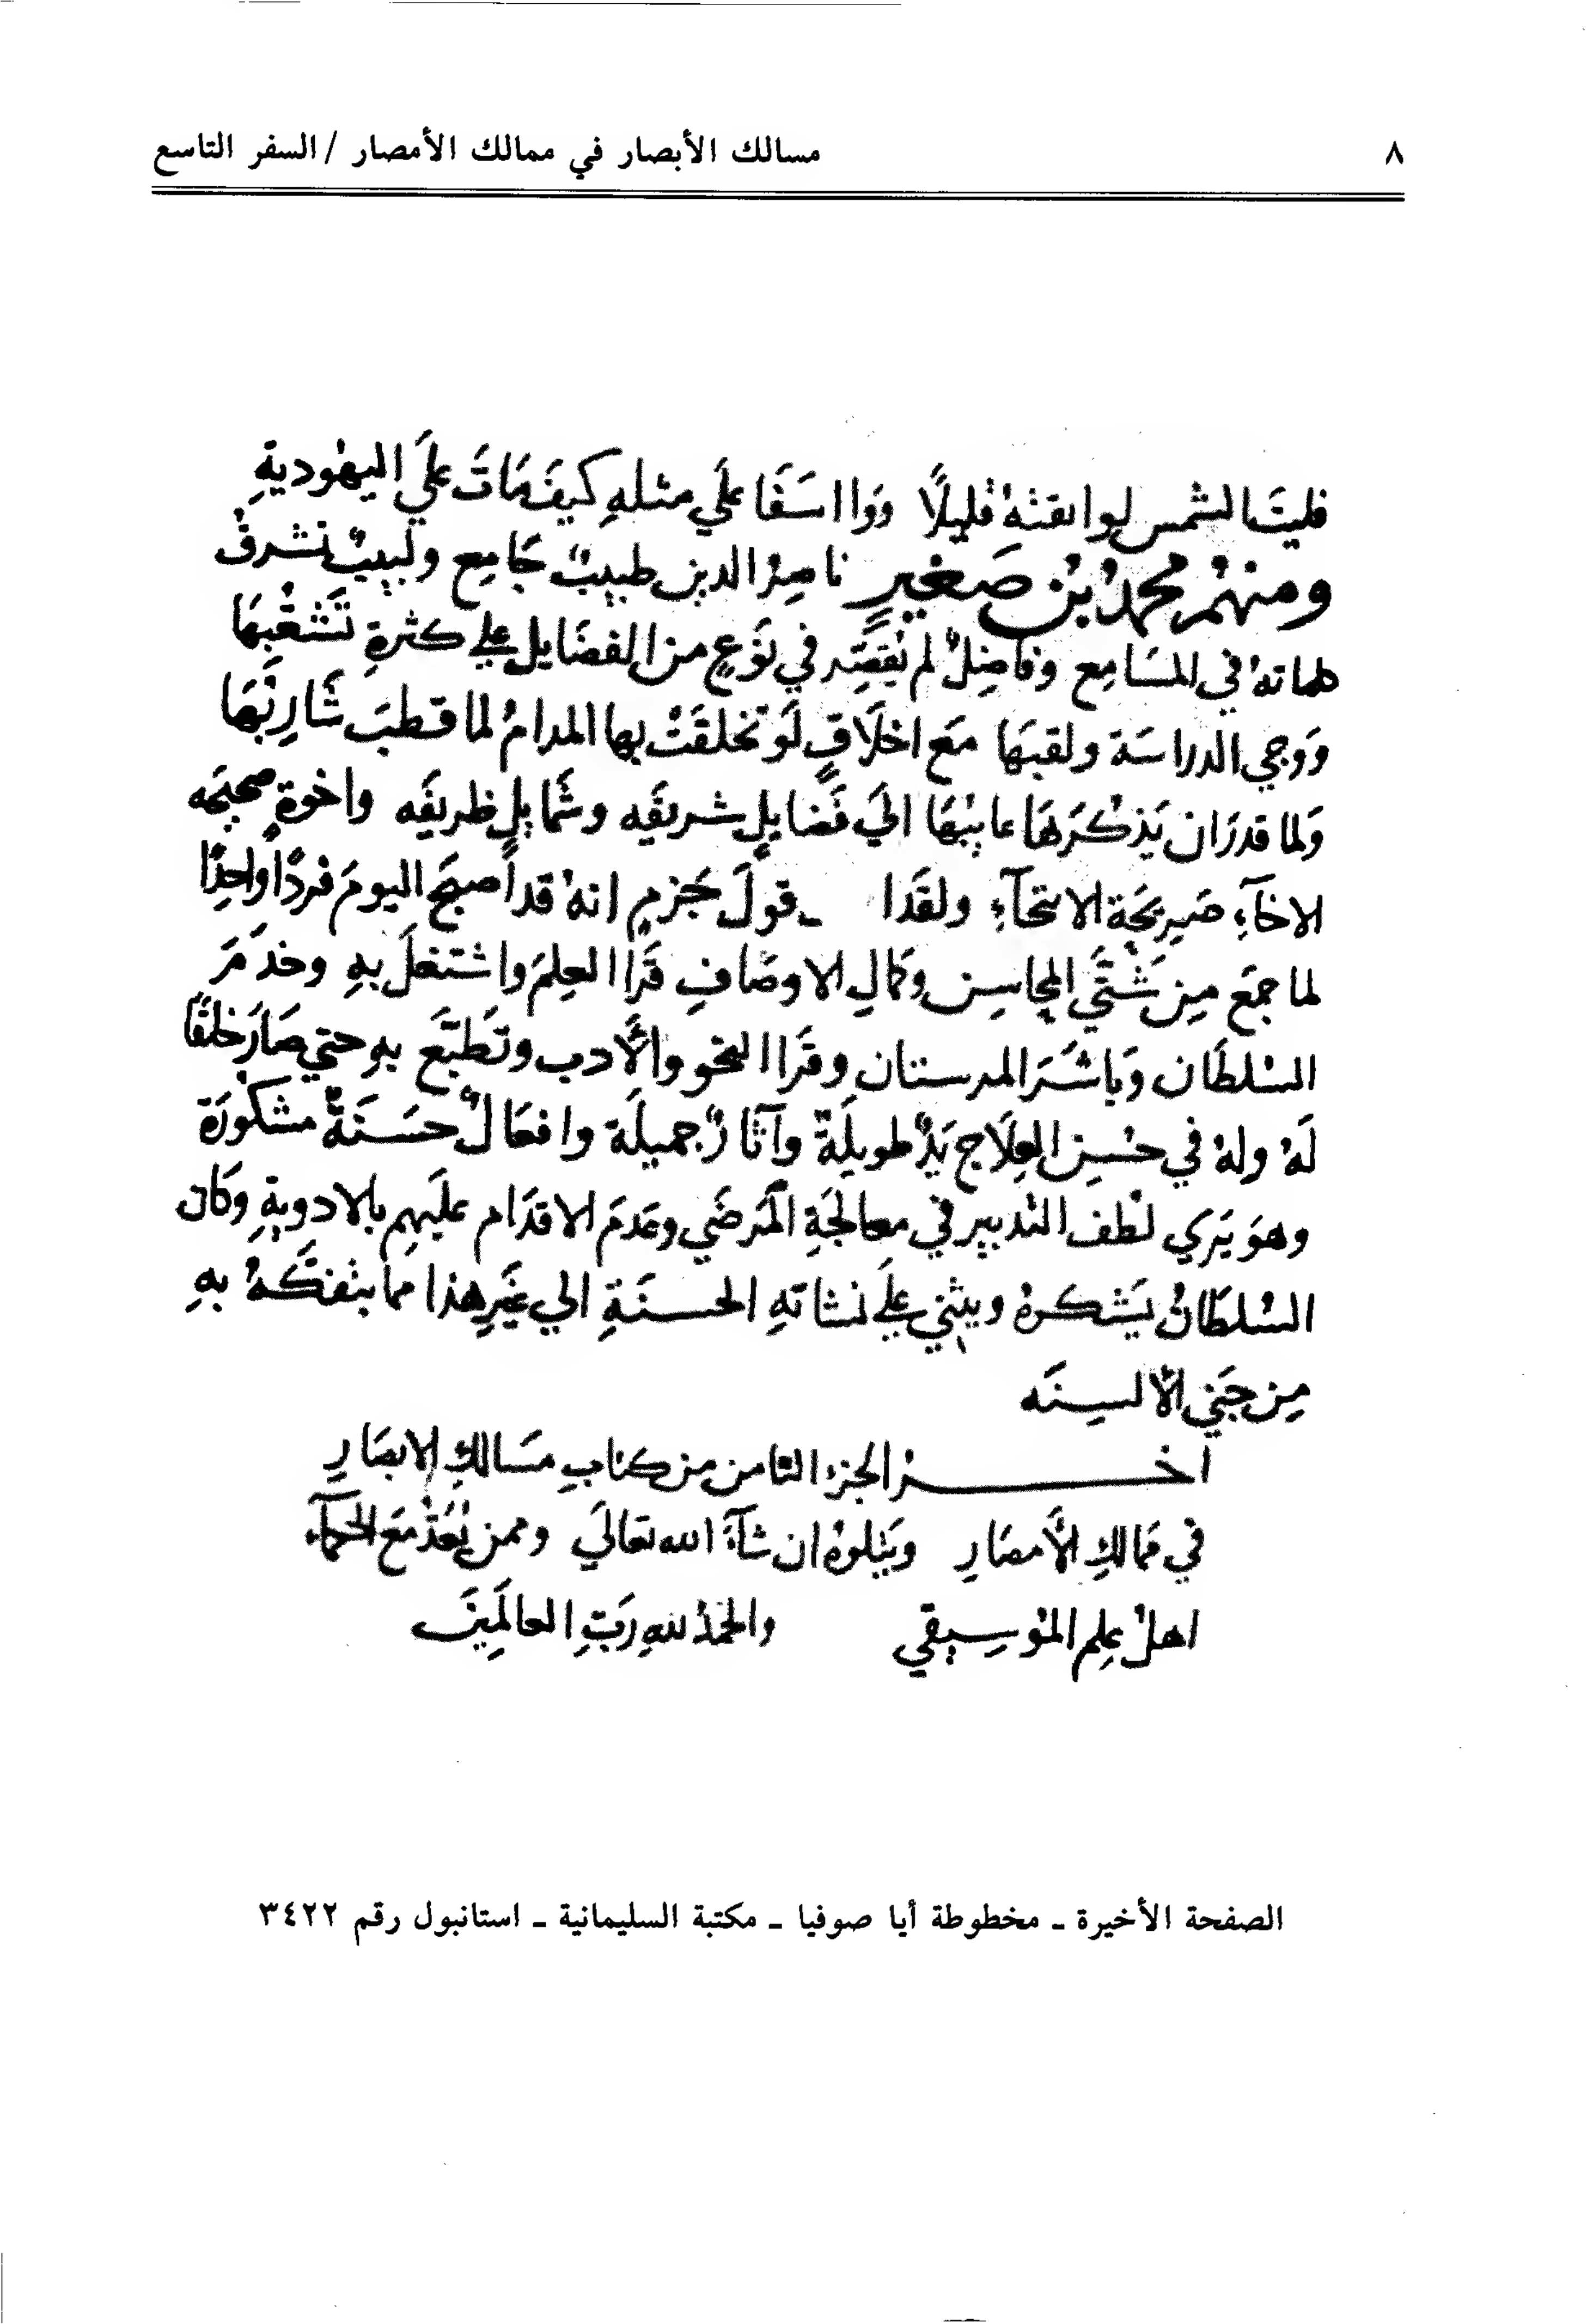 ٨ مسالك الأبصار في ممالك الأمصار / السفر التاسع
فليت الشمس لو ابقته قليلًا ووا اسَفَا علَي مثلهِ كيفَ مَاتَ علَي اليهوديةِ
ومنهم محمدُ بنُ صَغيرٍ ناصرُ الدين طبيبٌ جَامِع ولبيبٌ تشرقُ
في المسَامِع وفاضِلٌ لم في نَوعٍ من الفضَايل علي كثرةِ تَشَعُّبِهَا
الدراسَة ولقبهَا مَع اخلَاقٍ لَو تخلقَتْ بها المدامُ لما قطبَ شَارِبُهَا
وَلما قدرَ ان يَذكرَهَا عايبُهَا اليَ فَضايلٍ شريفَه وشمَايلٍ ظريفَه واخوةٍ صحيحَه
الاخَآءِ صَريحَة الانتحَآءِ ولقَد ا قولَ جَزمٍ انهُ قد أصبَح اليومَ فردًا واحِدًا
لما جمَع مِن شتَّي المحاسِن وكمالِ الاوصَافِ قَرَا العِلمَ واشتغلَ بهِ وخدَمَ
السُلطَان وَبَاشَرَ المرستان وقَرَا النحو والأَدب وتَطَبَّعَ بهِ حتي صَارَ خلقًا
لَهُ ولهُ في حُسنِ العِلَاجِ يَدٌ طويلَةٌ وآثارٌ جميلَة وافعَالٌ حسَنَةٌ مشكورَة
وهوَ يَرَي لُطفَ التدبير في معالجَةِ المَرضَي وعَدمَ الاقدَام علَيهم بالادويةِ وكَان
السُلطَانُ يَشكرهُ ويثني علَي نشاتهِ الحسنَةِ الي غَيرِ هذا مما يتفكَّهُ بهِ
مِن جَني الألسِنَه
اخرُ الجزءِ الثامن من كتابِ مسَالكِ الابصَارِ
في ممالكِ الأمصَارِ ويَتلوهُ ان شآءَ الله تعَاليَ وممن يُعَدُّ مَع الحكمآءِ
اهلُ علِم المُوسِيقي والحمدُ للهِ رَبِّ العالَمِينَ
الصفحة الأخيرة ـ مخطوطة أيا صوفيا ـ مكتبة السليمانية ـ استانبول رقم ٣٤٢٢